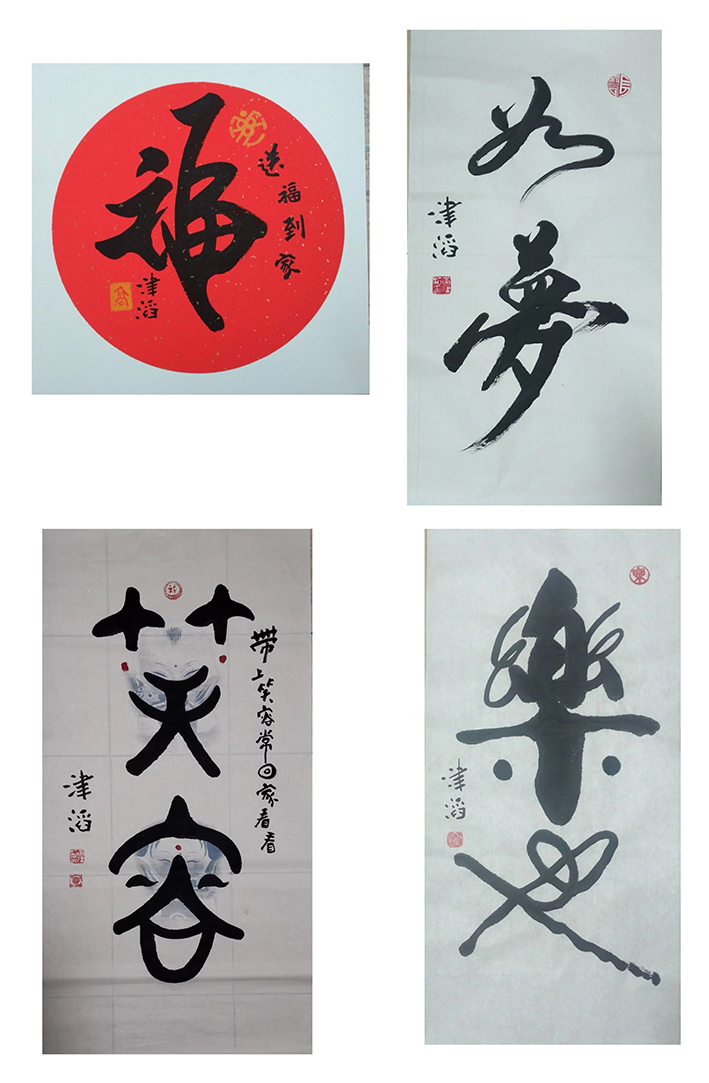 福
送福到家
津滔
如夢
津滔
笑容
帶上笑容常回家看看
津滔
樂也
津滔